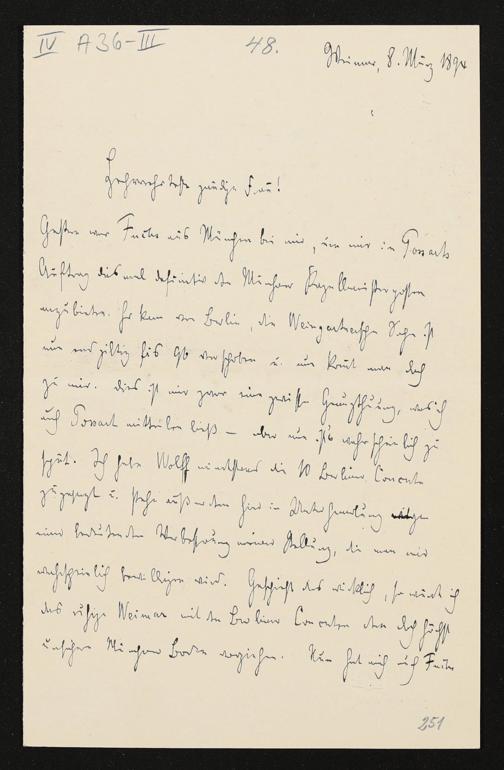 IV A36-III
48.
Weimar, 8. März 1894
Hochverehrteste gnädige Frau!
Gestern war Fuchs aus München bei mir, um mir in Possarts
Auftrag diesmal definitiv den Münchner Kapellmeisterposten
anzubieten. Er kam von Berlin, die Weingartnersche Sache ist
nun endgiltig bis 96 verschoben u. nun kommt man doch
zu mir. Dies ist mir zwar eine gewisse Genugthuung, was ich
auch Possart mitteilen ließ – aber nun ist's wahrscheinlich zu
spät. Ich habe Wolff mindestens die 10 Berliner Concerte
zugesagt u. stehe außerdem hier in Unterhandlung wegen
einer bedeutenden Verbesserung meiner Stellung, die man mir
wahrscheinlich bewilligen wird. Geschieht das wirklich, so würde ich
das ruhige Weimar mit den Berliner Concerten dem doch höchst
unsicheren Münchner Boden vorziehen. Nun hat mich auch Fuchs
251